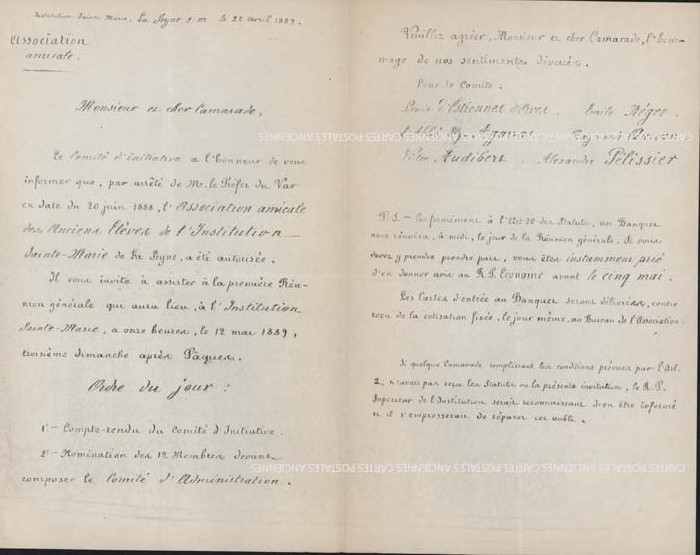 Institution Sainte-Marie. La Seyne s.m. le 22 avril 1889.
Association
amicale.
Monsieur et cher Camarade,
Le Comité d'initiative a l'honneur de vous
informer que, par arrêté de Mr. le Préfet du Var
en date du 20 juin 1888, l'Association amicale
des Anciens Elèves de l'Institution
Sainte-Marie de La Seyne, a été autorisée.
Il vous invite à assister à la première Réu-
nion générale qui aura lieu, à l'Institution
Sainte-Marie, à onze heures, le 12 mai 1889,
troisième dimanche après Pâques.
Ordre du jour :
1º - Compte-rendu du Comité d'Initiative.
2º - Nomination des 12 Membres devant
composer le Comité d'Administration.
Veuillez agréer, Monsieur et cher Camarade, l'hom-
mage de nos sentiments dévoués.
Pour le Comité :
d'Estiennes d'Orves. Emile Nègre.
L'Abbé
Victor Audibert. Alexandre Pélissier
P.S. - Conformément à l'Art. 20 des Statuts, un Banquet
nous réunira, à midi, le jour de la Réunion générale. Si vous
devez y prendre part, vous êtes instamment prié
d'en donner avis au R.P. Econome avant le cinq mai.
Les Cartes d'entrée au Banquet seront délivrées, contre
reçu de la cotisation fixée, le jour même, au Bureau de l'Association.
Si quelque Camarade remplissant les conditions prévues par l'Art.
2, n'avait pas reçu les Statuts ou la présente invitation, le R.P.
Supérieur de l'Institution serait reconnaissant d'en être informé
et il s'empresserait de réparer cet oubli.
CARTES POSTALES ANCIENNES CARTES POSTALES ANCIENNES
CARTES POSTALES ANCIENNES CARTES POSTALES ANCIENNES